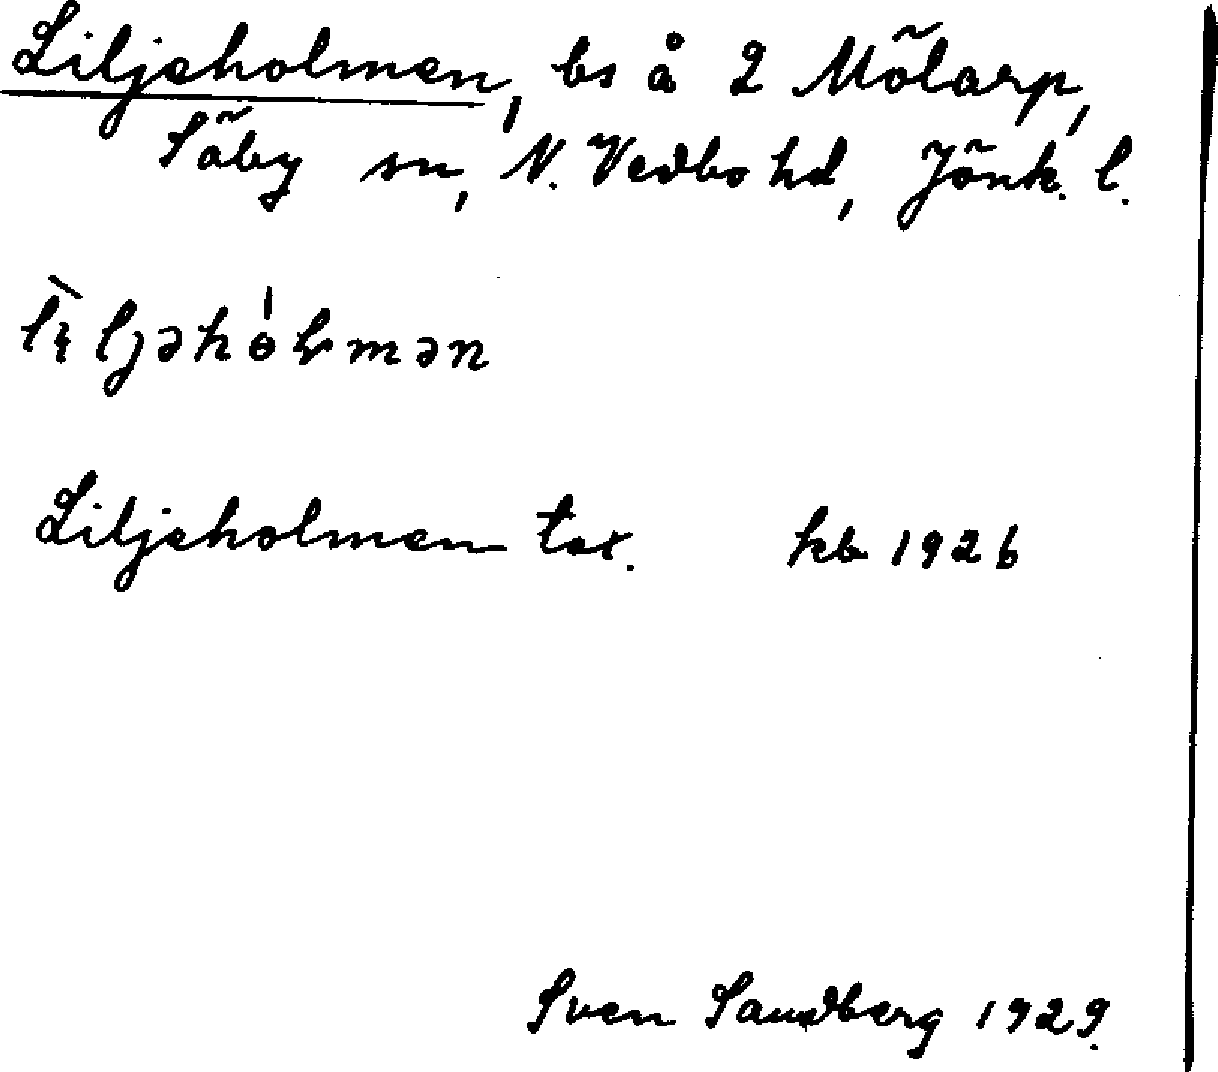 Liljeholmen, bs å 2 Mölarp,
Säby sn, N. Vedbo hd, Jönk. l.
Liljeholmen tax. kb 1926
Sven Sandberg 1929.